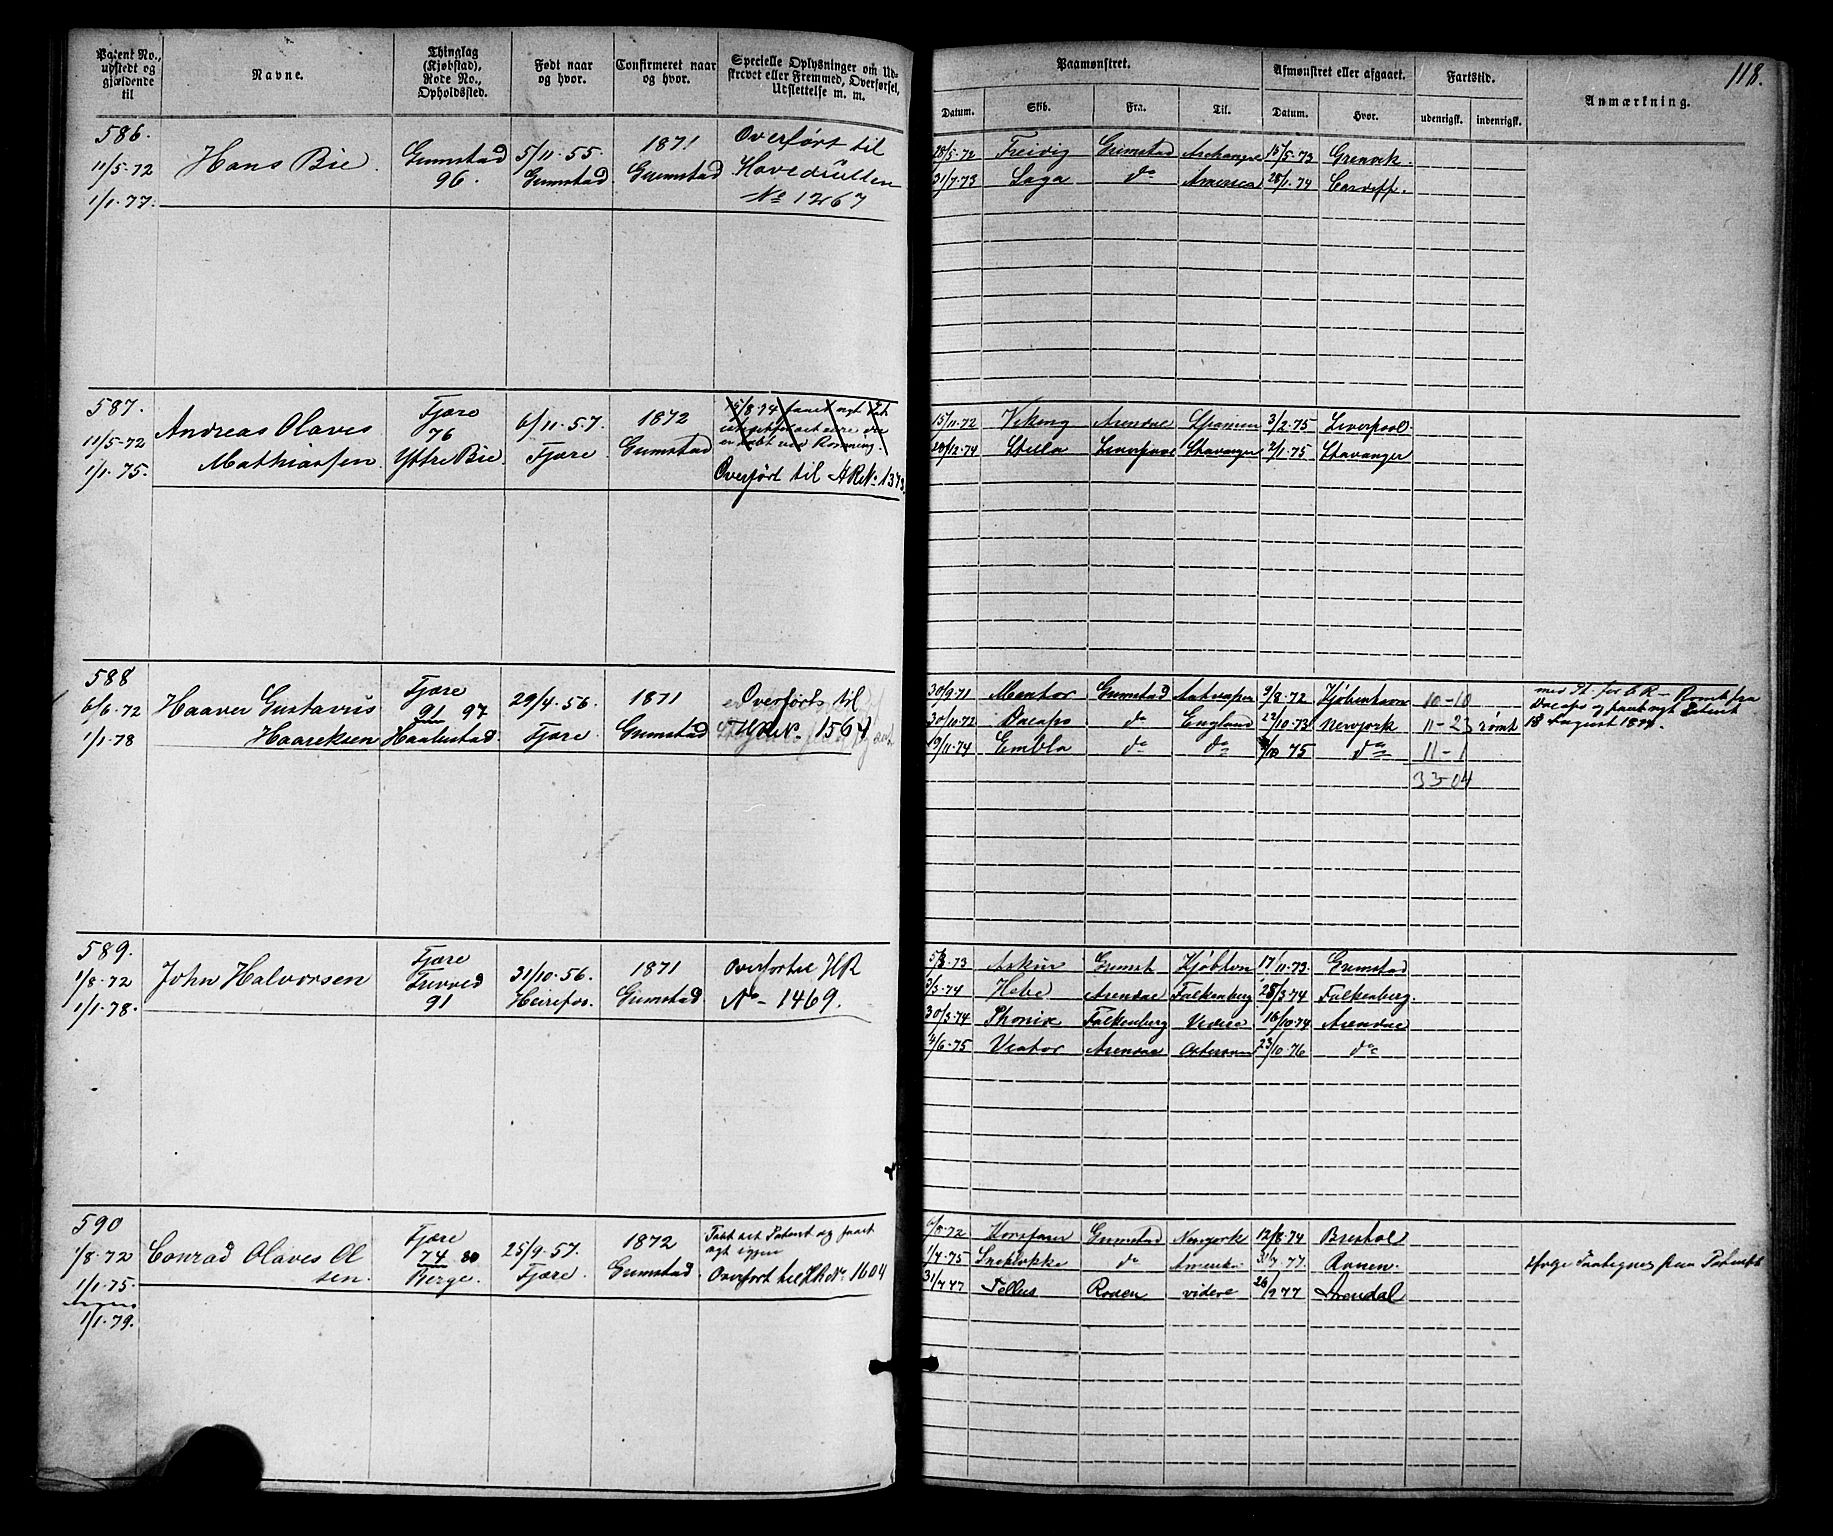 118.
Patent No., udstedt og gjældende til
Navne.
Thinglag (Kjøbstad), Rode No., Opholdssted.
Født naar og hvor.
Confirmeret naar og hvor.
Specielle Oplysninger om Udskrevet eller Fremmed, Overførsel, Udslettelse m. m.
Paamønstret.
Afmønstret eller afgaaet.
Fartstid.
Anmærkning.
Datum. Skib. Fra. Til. Datum. Hvor. udenrigsk. indenrigsk.
586.
11/5-72
1/1-77.
Hans Bie
Grimstad
96.
5/11-55.
Grimstad
1871
Grimstad
Overført til
Hovedrullen
No 1267
28/5-72 Freidig Grimstad Archangel 15/5-73
31/7-73 Saga do America 28/1-74 Cardiff.
587.
11/5-72
1/1-75.
Andreas Olaves
Mathiassen
Fjære
76
Yttre Bie
6/11-57.
Fjære
1872
Grimstad
Overført til HR No 1373.
15/11-72 Viking Arendal 3/2-75 Liverpool
29/12-74 Stella Liverpool Stavanger 2/1-75 Stavanger
588
6/6-72
1/1-78
Haaver Gustavus
Haareksen
Fjære
91 97
29/4-56.
Fjære
1871
Grimstad
Overførts til
HR No 1567
30/9-71 Mentor Grimstad Antverpen 9/8-72 Kjøbenhavn 10-10
30/11-72 Dacapo do England 22/10-73 Newyork 11-23 rømt
19/11-74 Embla do do 75 do 11-1
33-04
18 August 1874.
589.
1/8-72
1/1-78.
John Halvorsen
Fjære
Trevved
91
31/10-56.
Heirefos.
1871
Grimstad
Overfortil HR
No- 1469.
5/3-73 Askur Grimst Kjøbhvn 17/11-73 Grimstad
3/3-74 Hebe Arendal Falkenberg 28/3-74 Falkenberg.
30/3-74 Phønix Falkenberg Videre 16/10-74 Arendal
4/6-75 Viator Arendal 23/10-76 do
590
1/8-72
1/1-75
1/1-79.
Conrad Olaves Ol
sen.
Fjære
74 80
Bierge.
25/9-57.
Fjære
1872
Grimstad
Tabt sit Patent og faaet
nyt igjen
Overført til HR No 1604
6/8-72 Grimstad Newyork 12/8-74 Bristol
1/4-75 Sneklokke do Amerika 31/7-77. Rouen.
31/7-77 Tellus Rouen videre 26/9 77 Arendal